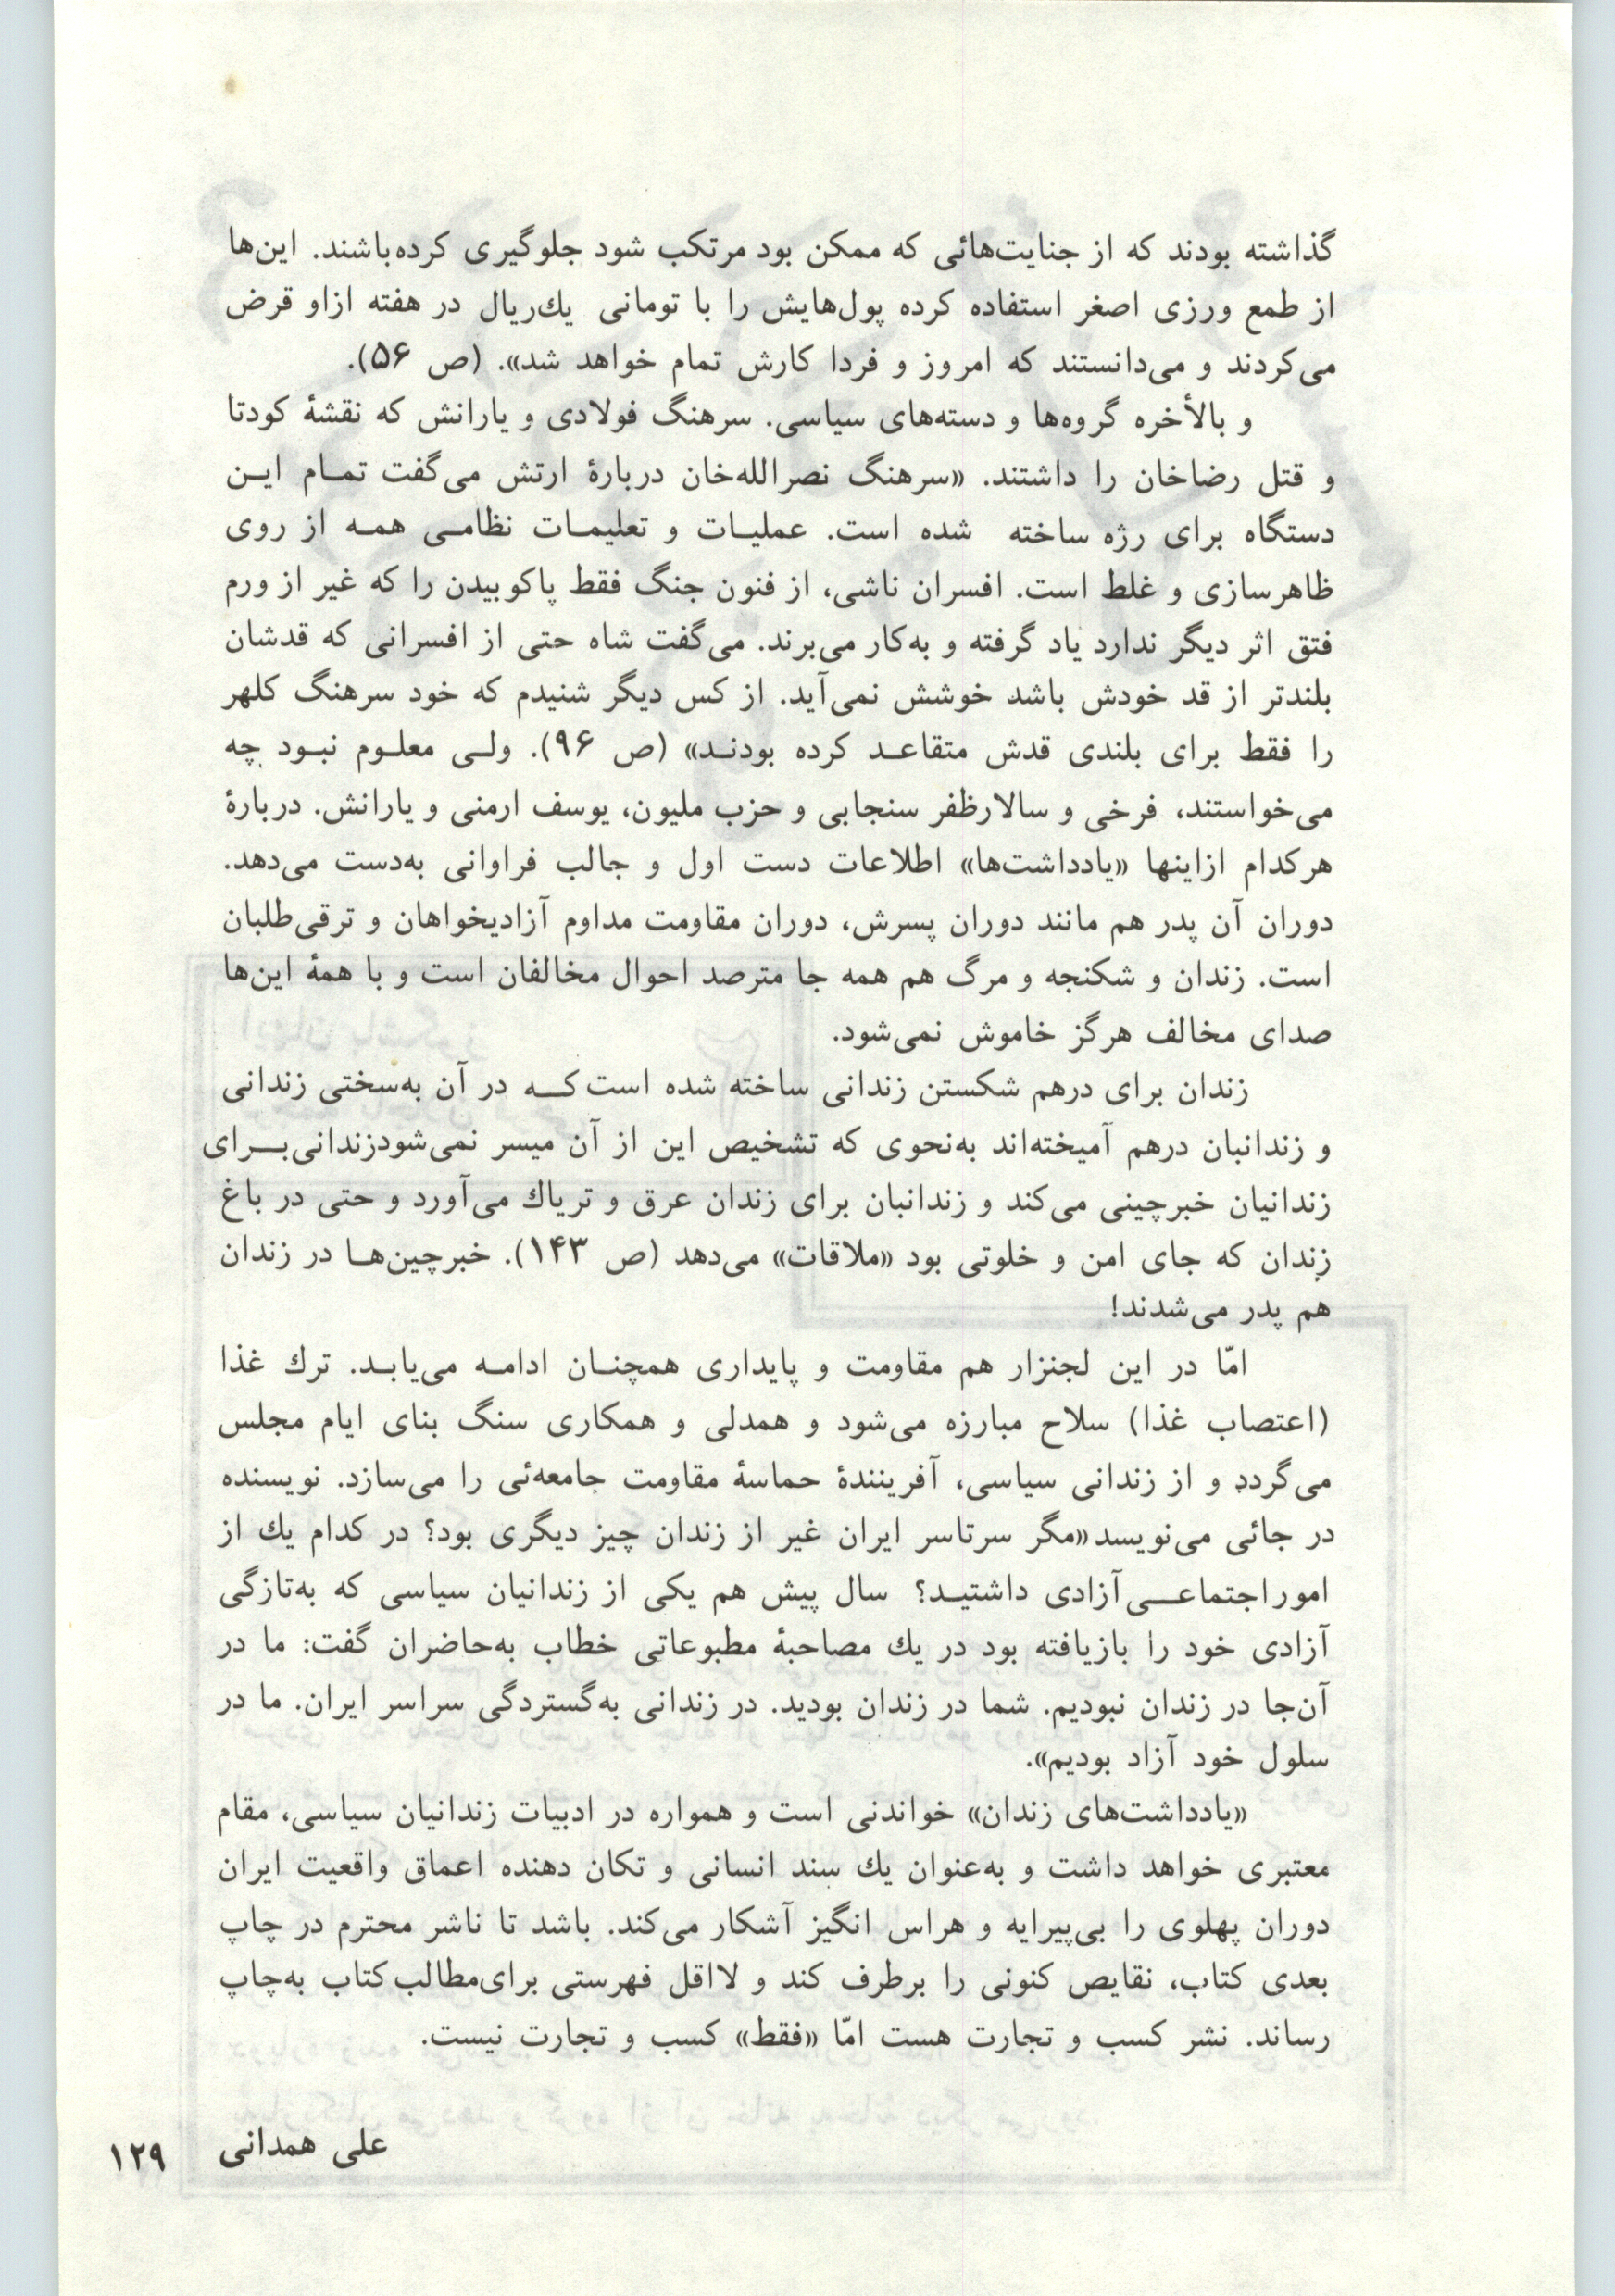 گذاشته بودند که از جنایت‌هائی که ممکن بود مرتکب شود جلوگیری کرده‌باشند. این‌ها
از طمع ورزی اصغر استفاده کرده پول‌هایش را با تومانی یك‌ریال در هفته ازاو قرض
می‌کردند و می‌دانستند که امروز و فردا کارش تمام خواهد شد». (ص ۵۶).
و بالأخره گروه‌ها و دسته‌های سیاسی. سرهنگ فولادی و یارانش که نقشهٔ کودتا
و قتل رضاخان را داشتند. «سرهنگ نصرالله‌خان دربارهٔ ارتش می‌گفت تمـام ایـن
دستگاه برای رژه ساخته شده است. عملیـات و تعلیمـات نظامـی همـه از روی
ظاهرسازی و غلط است. افسران ناشی، از فنون جنگ فقط پاکوبیدن را که غیر از ورم
فتق اثر دیگر ندارد یاد گرفته و به‌کار می‌برند. می‌گفت شاه حتی از افسرانی که قدشان
بلندتر از قد خودش باشد خوشش نمی‌آید. از کس دیگر شنیدم که خود سرهنگ کلهر
را فقط برای بلندی قدش متقاعـد کرده بودنـد» (ص ۹۶). ولـی معلـوم نبـود چه
می‌خواستند، فرخی و سالارظفر سنجابی و حزب ملیون، یوسف ارمنی و یارانش. دربارهٔ
هرکدام ازاینها «یادداشت‌ها» اطلاعات دست اول و جالب فراوانی به‌دست می‌دهد.
دوران آن پدر هم مانند دوران پسرش، دوران مقاومت مداوم آزادیخواهان و ترقی‌طلبان
است. زندان و شکنجه و مرگ هم همه جا مترصد احوال مخالفان است و با همهٔ این‌ها
صدای مخالف هرگز خاموش نمی‌شود.
زندان برای درهم شکستن زندانی ساخته شده است کـه در آن به‌سختی زندانی
و زندانبان درهم آمیخته‌اند به‌نحوی که تشخیص این از آن میسر نمی‌شودزندانی‌بـرای
زندانیان خبرچینی می‌کند و زندانبان برای زندان عرق و تریاك می‌آورد و حتی در باغ
زندان که جای امن و خلوتی بود «ملاقات» می‌دهد (ص ۱۴۳). خبرچین‌هـا در زندان
هم پدر می‌شدند!
امّا در این لجنزار هم مقاومت و پایداری همچنـان ادامـه می‌یابـد. ترك غذا
(اعتصاب غذا) سلاح مبارزه می‌شود و همدلی و همکاری سنگ بنای ایام مجلس
می‌گردد و از زندانی سیاسی، آفرینندهٔ حماسهٔ مقاومت جامعه‌ئی را می‌سازد. نویسنده
در جائی می‌نویسد «مگر سرتاسر ایران غیر از زندان چیز دیگری بود؟ در کدام یك از
امور اجتماعـی آزادی داشتیـد؟ سال پیش هم یکی از زندانیان سیاسی که به‌تازگی
آزادی خود را بازیافته بود در یك مصاحبهٔ مطبوعاتی خطاب به‌حاضران گفت: ما در
آن‌جا در زندان نبودیم. شما در زندان بودید. در زندانی به‌گستردگی سراسر ایران. ما در
سلول خود آزاد بودیم».
«یادداشت‌های زندان» خواندنی است و همواره در ادبیات زندانیان سیاسی، مقام
معتبری خواهد داشت و به‌عنوان یك سند انسانی و تکان دهنده اعماق واقعیت ایران
دوران پهلوی را بی‌پیرایه و هراس انگیز آشکار می‌کند. باشد تا ناشر محترم در چاپ
بعدی کتاب، نقایص کنونی را برطرف کند و لااقل فهرستی برای‌مطالب کتاب به‌چاپ
رساند. نشر کسب و تجارت هست امّا «فقط» کسب و تجارت نیست.
علی همدانی
۱۲۹